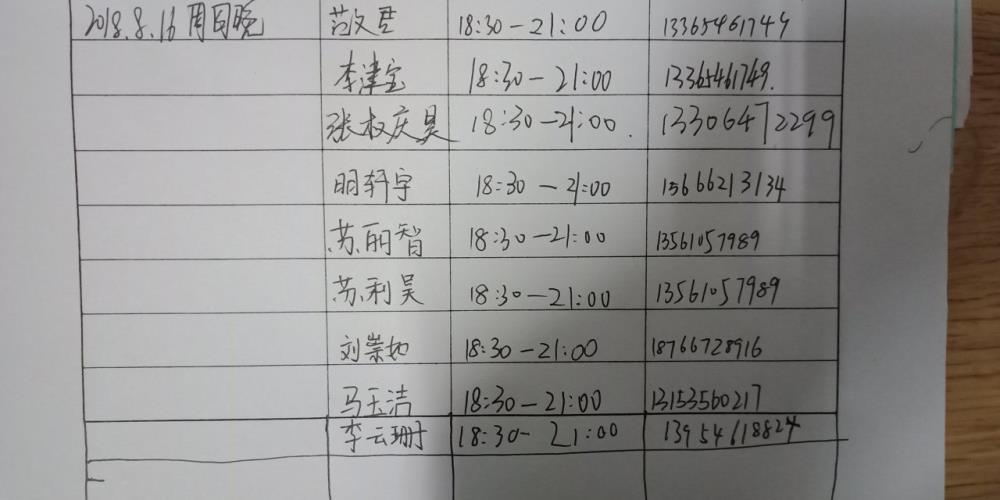 2018.8.16 周四晚 范文君 18:30-21:00 13365461749
李津宝 18:30-21:00 13365461749.
张权庆昊 18:30-21:00. 13306472299
明轩宇 18:30-21:00 15666213134
苏丽智 18:30-21:00 13561057989
苏利昊 18:30-21:00 13561057989
刘崇如 18:30-21:00 18766728916
马玉洁 18:30-21:00 13153560217
李云珊 18:30-21:00 13954618824